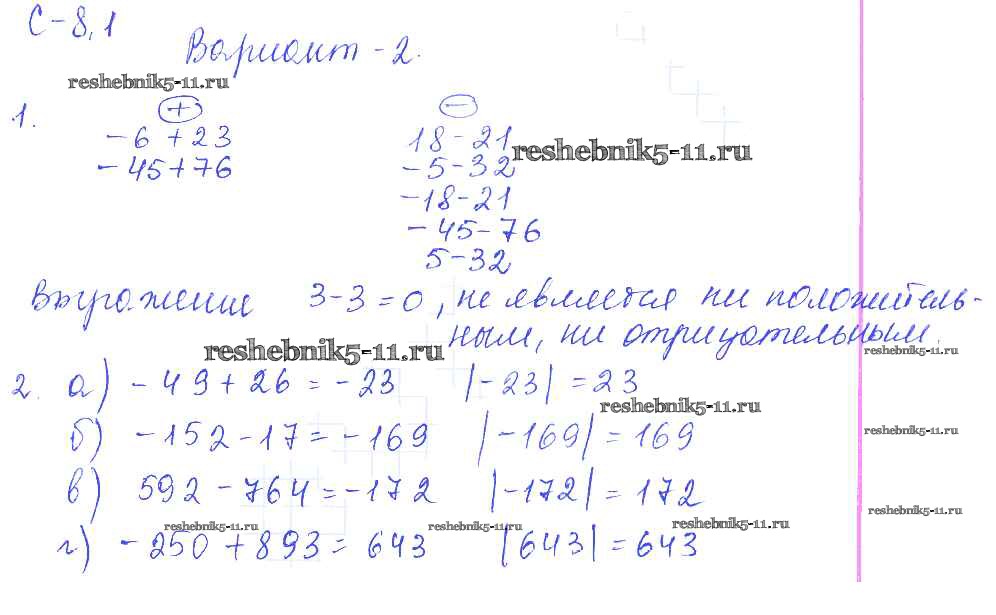 С-8,1
Вариант-2.
reshebnik5-11.ru
1. + −
-6+23 18-21
reshebnik5-11.ru
-45+76 -5-32
-18-21
-45-76
5-32
Выражение 3-3=0, не является ни положитель-
ным, ни отрицательным.
reshebnik5-11.ru
reshebnik5-11.ru
2. а) -49+26=-23 |-23|=23
reshebnik5-11.ru
б) -152-17=-169 |-169|=169
reshebnik5-11.ru
в) 592-764=-172 |-172|=172
reshebnik5-11.ru
reshebnik5-11.ru reshebnik5-11.ru reshebnik5-11.ru
г) -250+893=643 |643|=643